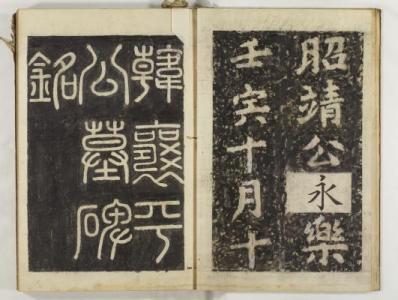 昭靖公永樂
壬寅十月十
韓襄平
公墓碑
銘